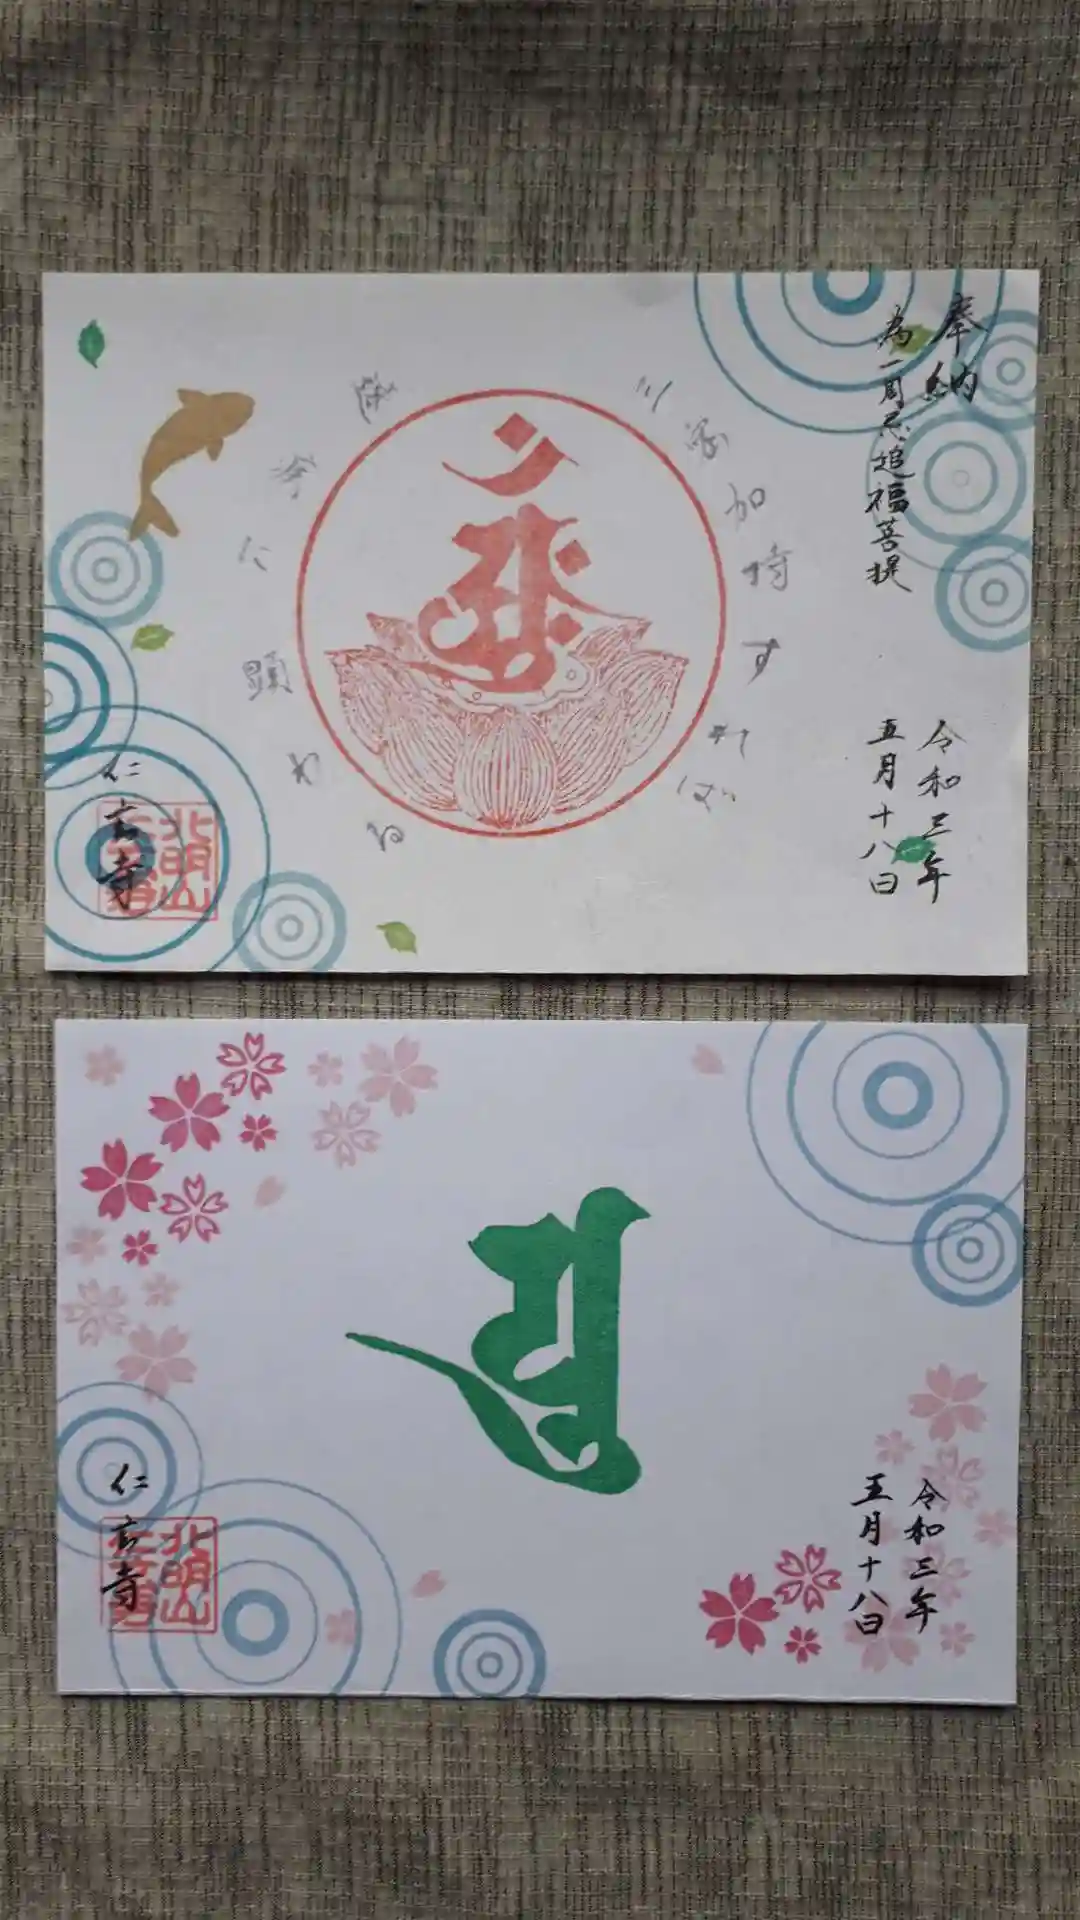 奉納
為一周忌追福菩提
令和三年
五月十八日
三密加持すれば
速疾に顕わる
仁玄寺
北明山
仁玄寺
令和三年
五月十八日
仁玄寺
北明山
仁玄寺